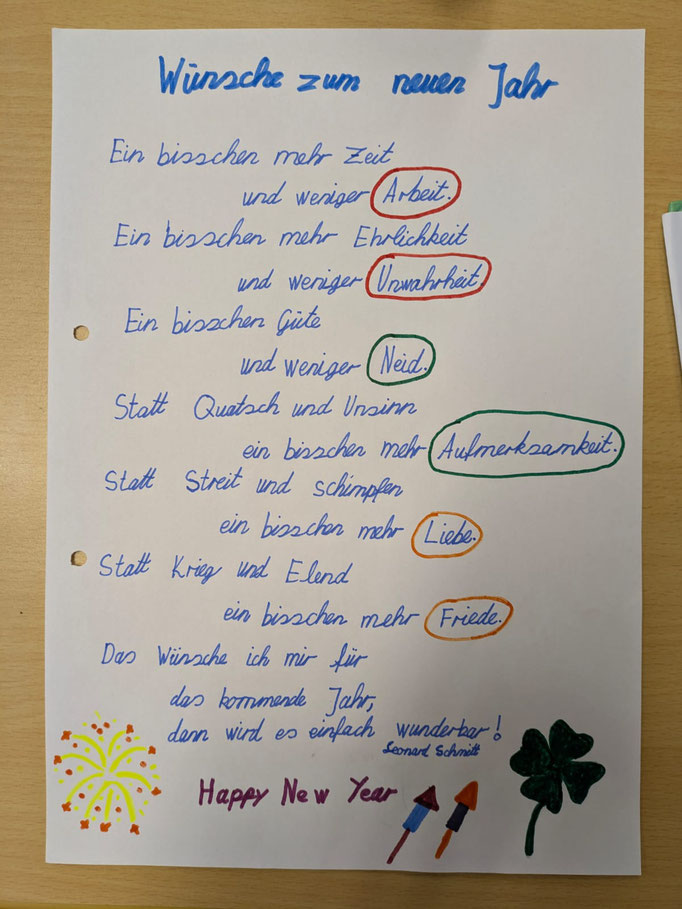 Wünsche zum neuen Jahr
Ein bisschen mehr Zeit
und weniger Arbeit.
Ein bisschen mehr Ehrlichkeit
und weniger Unwahrheit.
Ein bisschen Güte
und weniger Neid.
Statt Quatsch und Unsinn
ein bisschen mehr Aufmerksamkeit.
Statt Streit und schimpfen
ein bisschen mehr Liebe.
Statt Krieg und Elend
ein bisschen mehr Friede.
Das Wünsche ich mir für
das kommende Jahr,
dann wird es einfach wunderbar!
Leonard Schmitt
Happy New Year